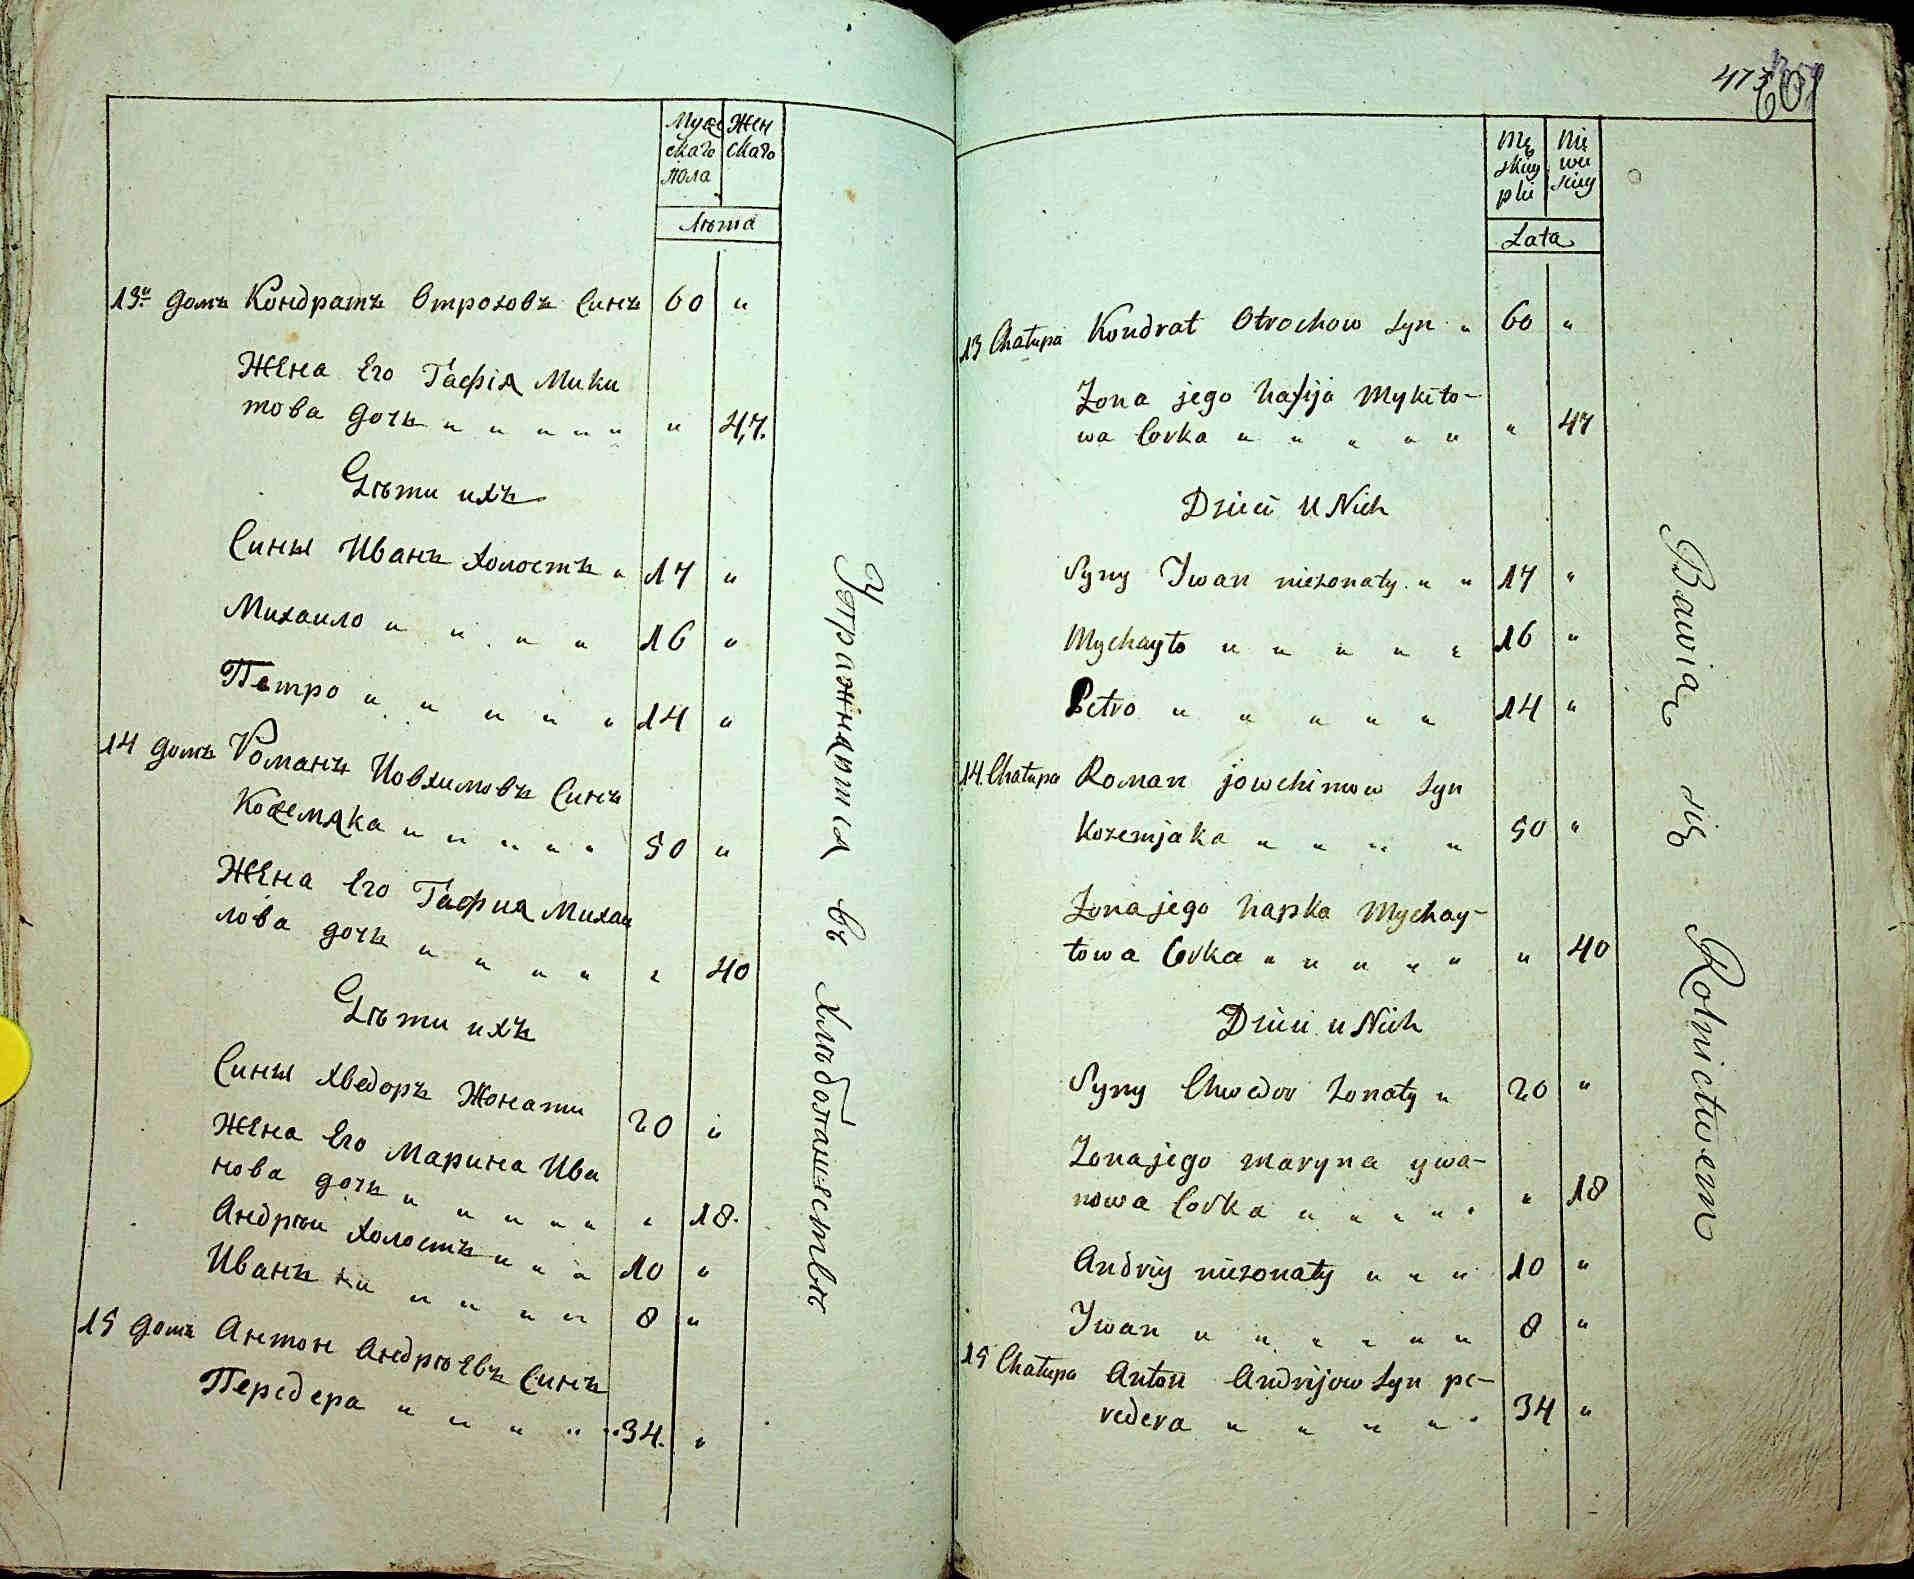 Муже Жен
скаго скаго
пола
Лѣта
13й домъ Кондратъ Отроховъ Синъ 60 "
Жена Его Гафія Мики
това дочь " " " " " " 47.
Дѣти ихъ
Сины Иванъ холостъ " 17 "
Михаило " " " " 16 "
Петро " " " " " 14 "
14 домъ Романъ Иовхимовъ Синъ
Кожемяка " " " " " 50 "
Жена Его Гафия Михаи
лова дочь " " " " " 40
Дѣти ихъ
Сины Хведоръ Жонати 20 "
Жена Его Марина Ива
нова дочь " " " " " " 18.
Андрѣи холостъ " " " 10 "
Иванъ " " " " " 8 "
15 домъ Антон Андрѣевъ Синъ
Передера " " " " " 34. "
Упражнятия въ Хлѣбопашествѣ
473
Mę Nie
skiey wie
płci sciey
Lata
13 Chałupa Kondrat Otrochow Syn " 60 "
Zona jego hafija Mykito-
wa Corka " " " " " " 47
Dzieci u Nich
Syny Iwan niezonaty " " 17 "
Mychayło " " " " " 16 "
Petro " " " " " 14 "
14 Chałupa Roman jowchimow Syn
Kozemjaka " " " " 50 "
Zona jego hapka Mychay-
łowa Corka " " " " " " 40
Dzieci u Nich
Syny Chwedor zonaty " 20 "
Zona jego maryna ywa-
nowa Corka " " " " " " 18
Andriy niezonaty " " " 10 "
Iwan " " " " " " 8 "
15 Chałupa Anton Andrijow Syn pe-
redera " " " " " 34 "
Bawią się Rolnictwem